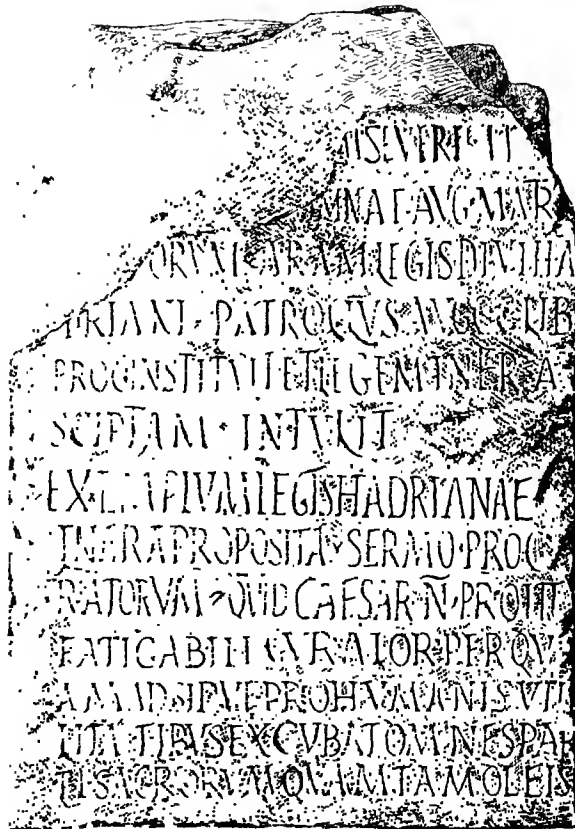 TI SEVERI ET
MNAE AVG MATR
ORVM ARAM LEGIS DIVI HA
DRIANI PATROCLVS AVGGG LIB
PROC INSTITVIT ET LEGEM INFRA
SCIPTAM INTVLIT
EXEMPLVM LEGIS HADRIANAE
IN ARA PROPOSITA SERMO PROC
RATORVM QVID CAESAR N PRO
FATIGABILI CVRA PER QV
AM ADSIDVE PRO HVMANIS VTI
LITATIBVS EXCVBAT OMNES PAR
TIS AGRORVM QVAM TAM OLEIS